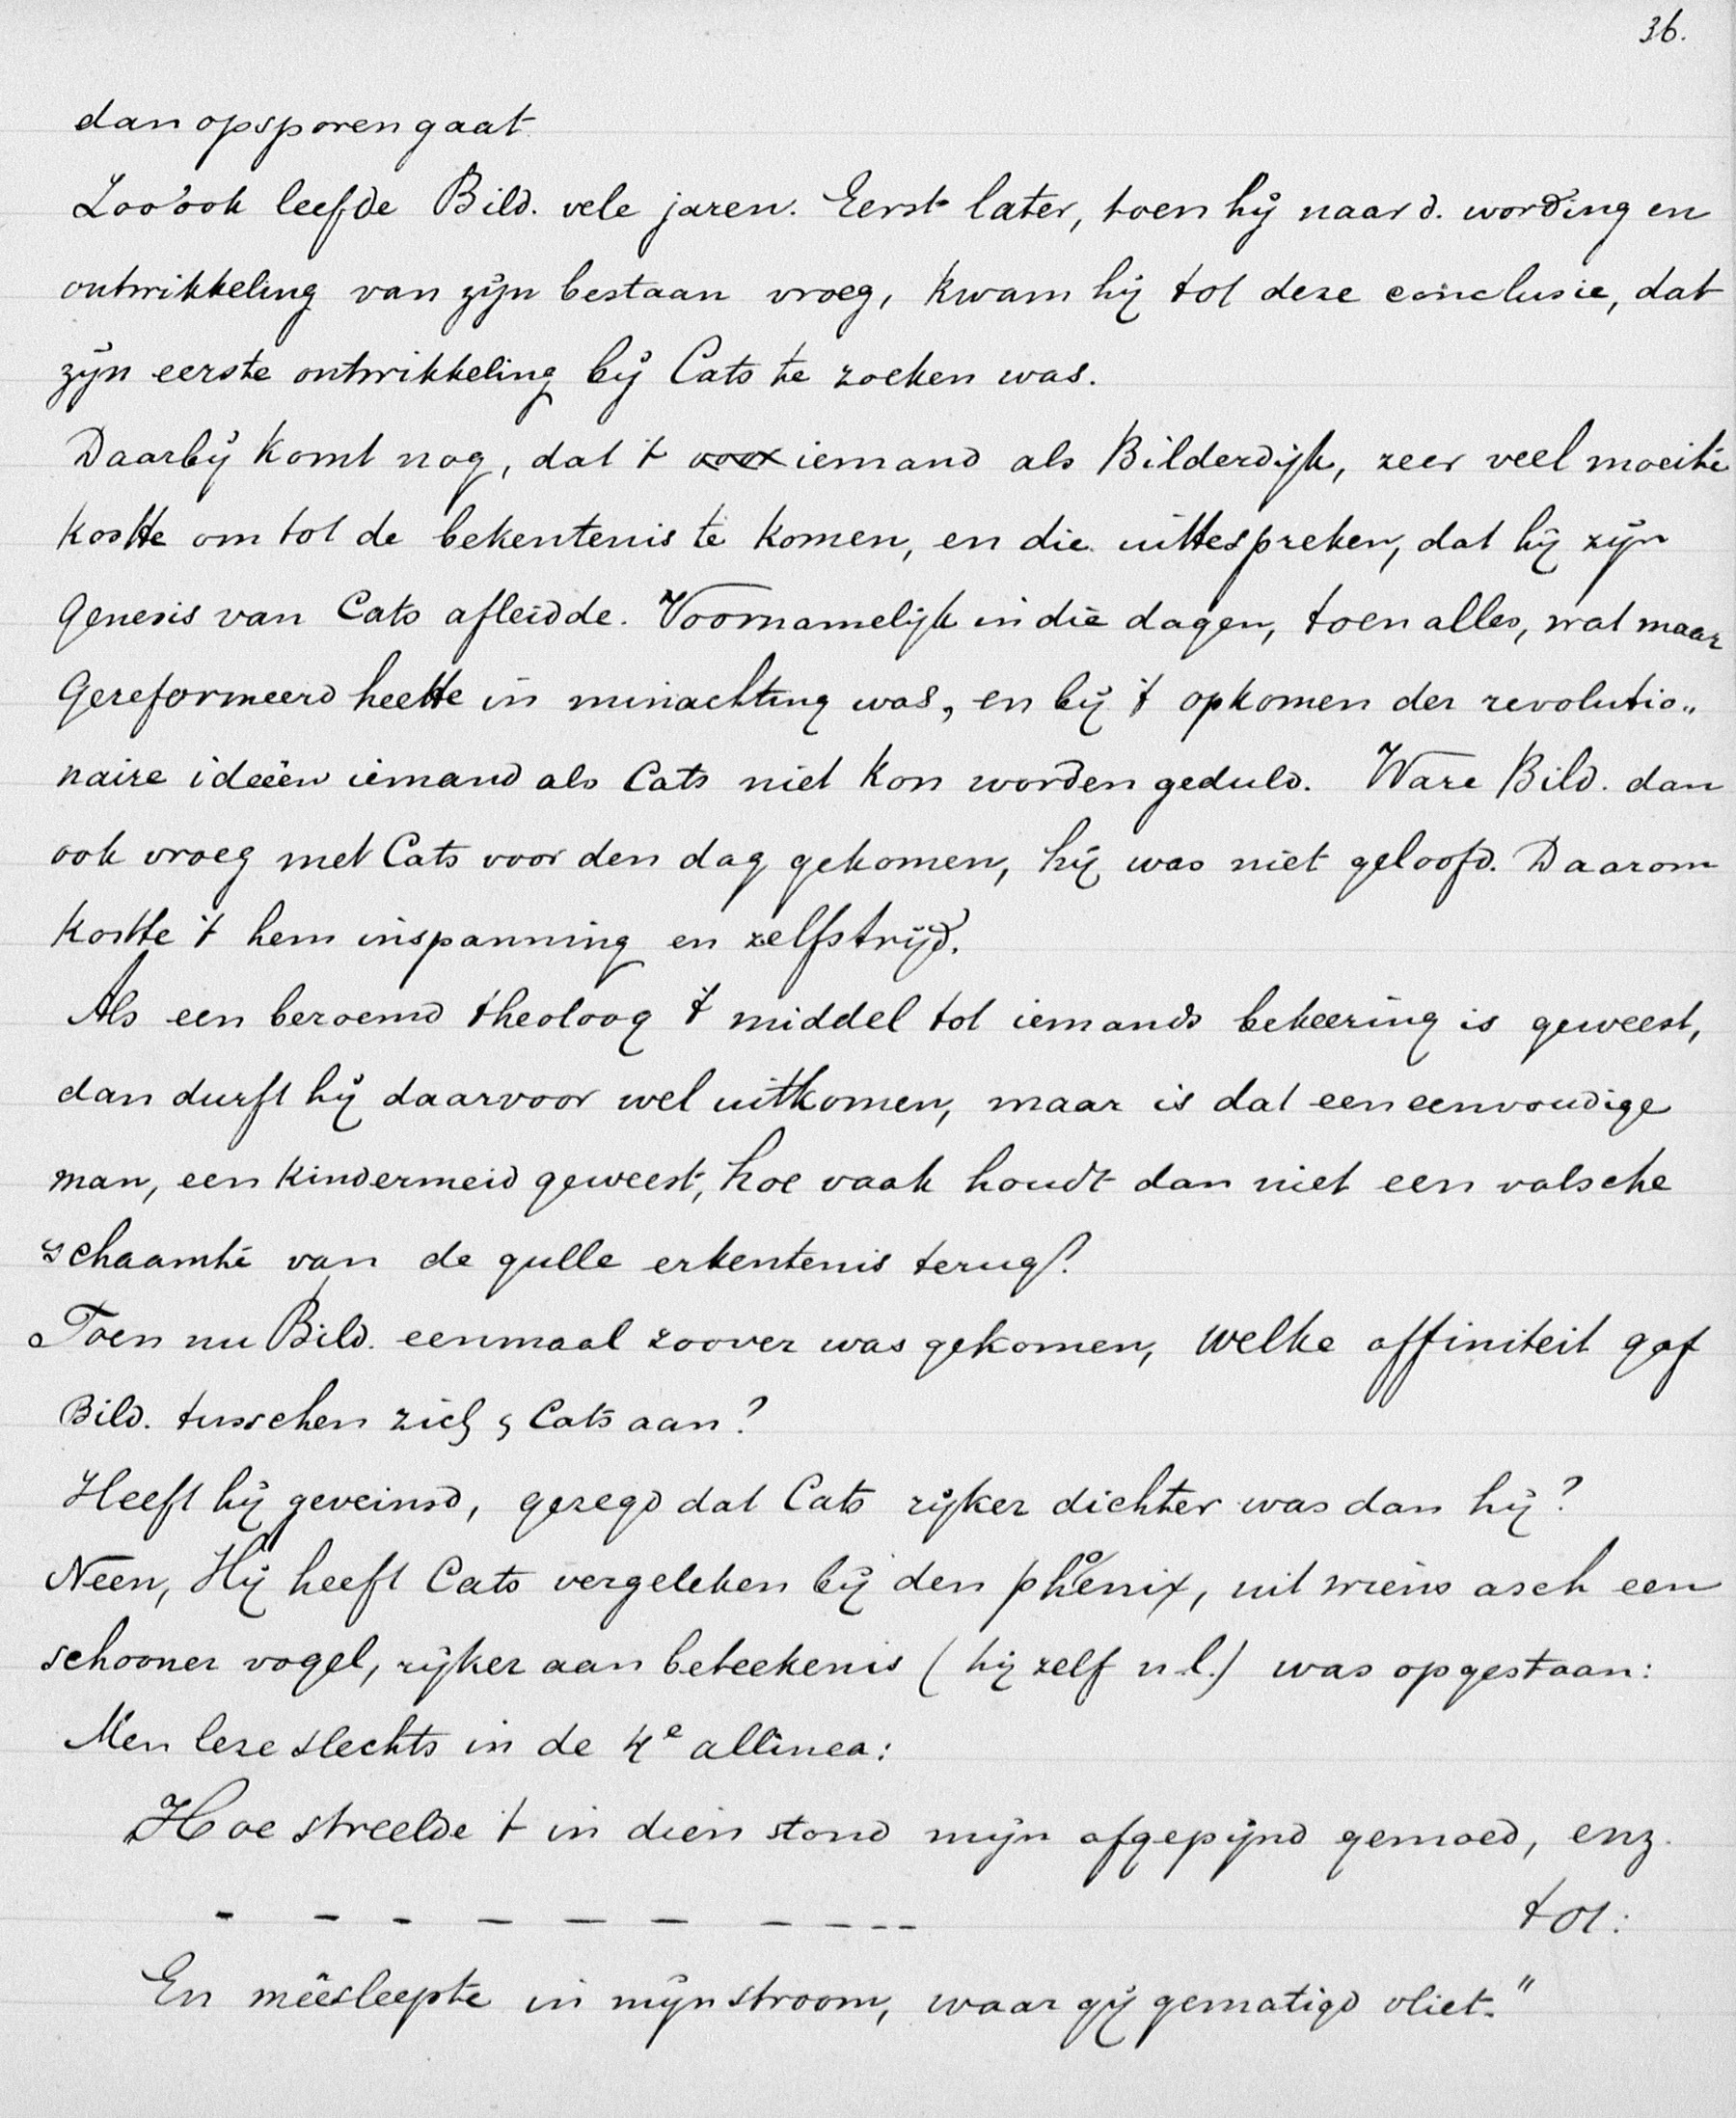 36.
dan opsporen gaat.
Zoo ook leefde Bild. vele jaren. Eerst later, toen hij naar d. wording en
ontwikkeling van zijn bestaan vroeg, kwam hij tot deze conclusie, dat
zijn eerste ontwikkeling bij Cats te zoeken was.
Daarbij komt nog, dat 't voor iemand als Bilderdijk, zeer veel moeite
kostte om tot de bekentenis te komen, en die uittespreken, dat hij zijn
Genesis van Cats afleidde. Voornamelijk in die dagen, toen alles, wat maar
Gereformeerd heette in minachting was, en bij 't opkomen der revolutio„
naire ideeën iemand als Cats niet kon worden geduld. Ware Bild. dan
ook vroeg met Cats voor den dag gekomen, hij was niet geloofd. Daarom
kostte 't hem inspanning en zelfstrijd.
Als een beroemd theoloog 't middel tot iemands bekeering is geweest,
dan durft hij daarvoor wel uitkomen, maar is dat een eenvoudige
man, een kindermeid geweest, hoe vaak houdt dan niet een valsche
schaamte van de gulle erkentenis terug?
Toen nu Bild. eenmaal zoover was gekomen, welke affiniteit gaf
Bild. tusschen zich & Cats aan?
Heeft hij geveinsd, gezegd dat Cats rijker dichter was dan hij?
Neen, Hij heeft Cats vergeleken bij den phoenix, uit wiens asch een
schooner vogel, rijker aan beteekenis (hij zelf n.l.) was opgestaan:
Men leze slechts in de 4e allinea:
Hoe streelde 't in dien stond mijn afgepijnd gemoed, enz.
- - - - - - - - - - tot:
En meêsleepte in mijn stroom, waar gij gematigd vliet."